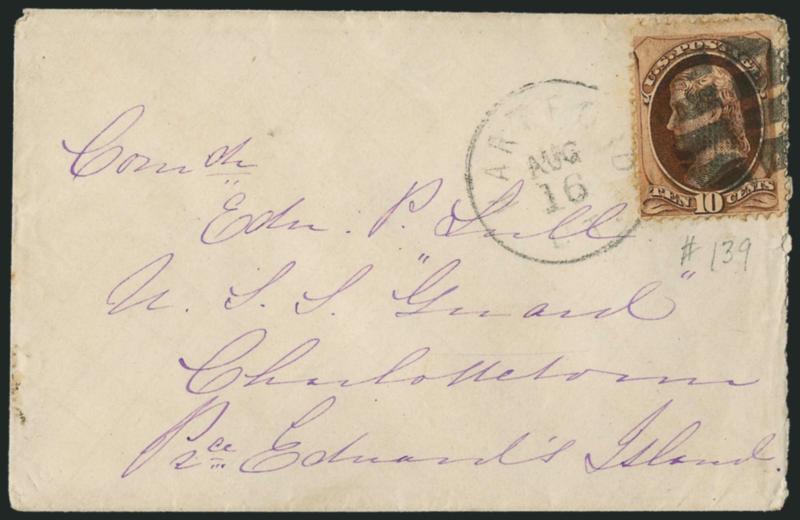 U.S. POSTAGE
TEN 10 CENTS
HARTFORD
AUG
16
# 139
Comdr
Edw. P. Lull
U. S. S. "Guard"
Charlottetown
Pce Edward's Island.